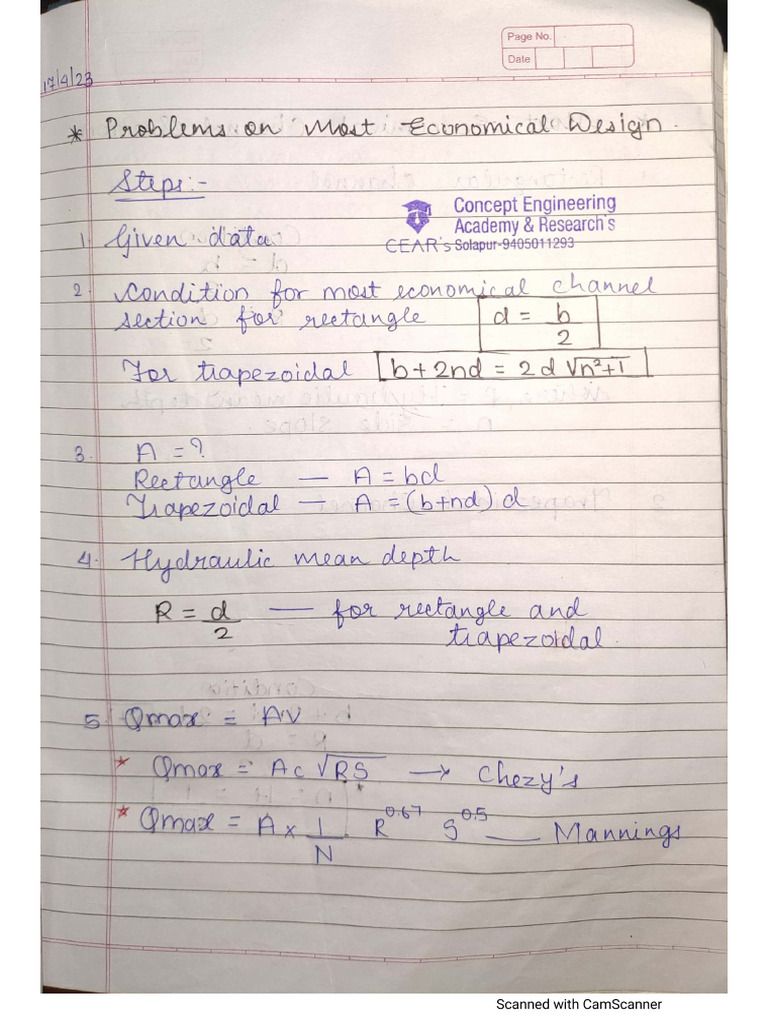 Page No.
Date
17/4/23
* Problems on Most Economical Design.
Steps:-
Concept Engineering
Academy & Research's
CEAR's Solapur-9405011293
1. Given data
2. Condition for most economical channel
section for rectangle d = b/2
For trapezoidal b+2nd = 2d √n²+1
3. A = ?
Rectangle — A = bd
Trapezoidal — A = (b+nd) d
4. Hydraulic mean depth
R = d/2 — for rectangle and
trapezoidal.
5. Qmax = AV
* Qmax = AC √RS → Chezy's
* Qmax = A x 1/N R^0.67 S^0.5 — Mannings
Scanned with CamScanner